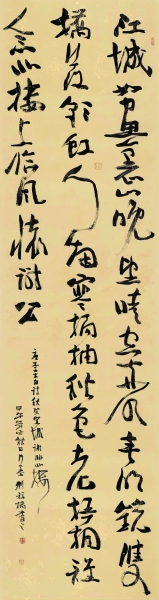 江城如畫裏山晚望晴空兩水夾明鏡雙
橋落彩虹人煙寒橘柚秋色老梧桐誰
念北樓上臨風懷謝公
唐李太白詩秋登宣城謝朓北樓